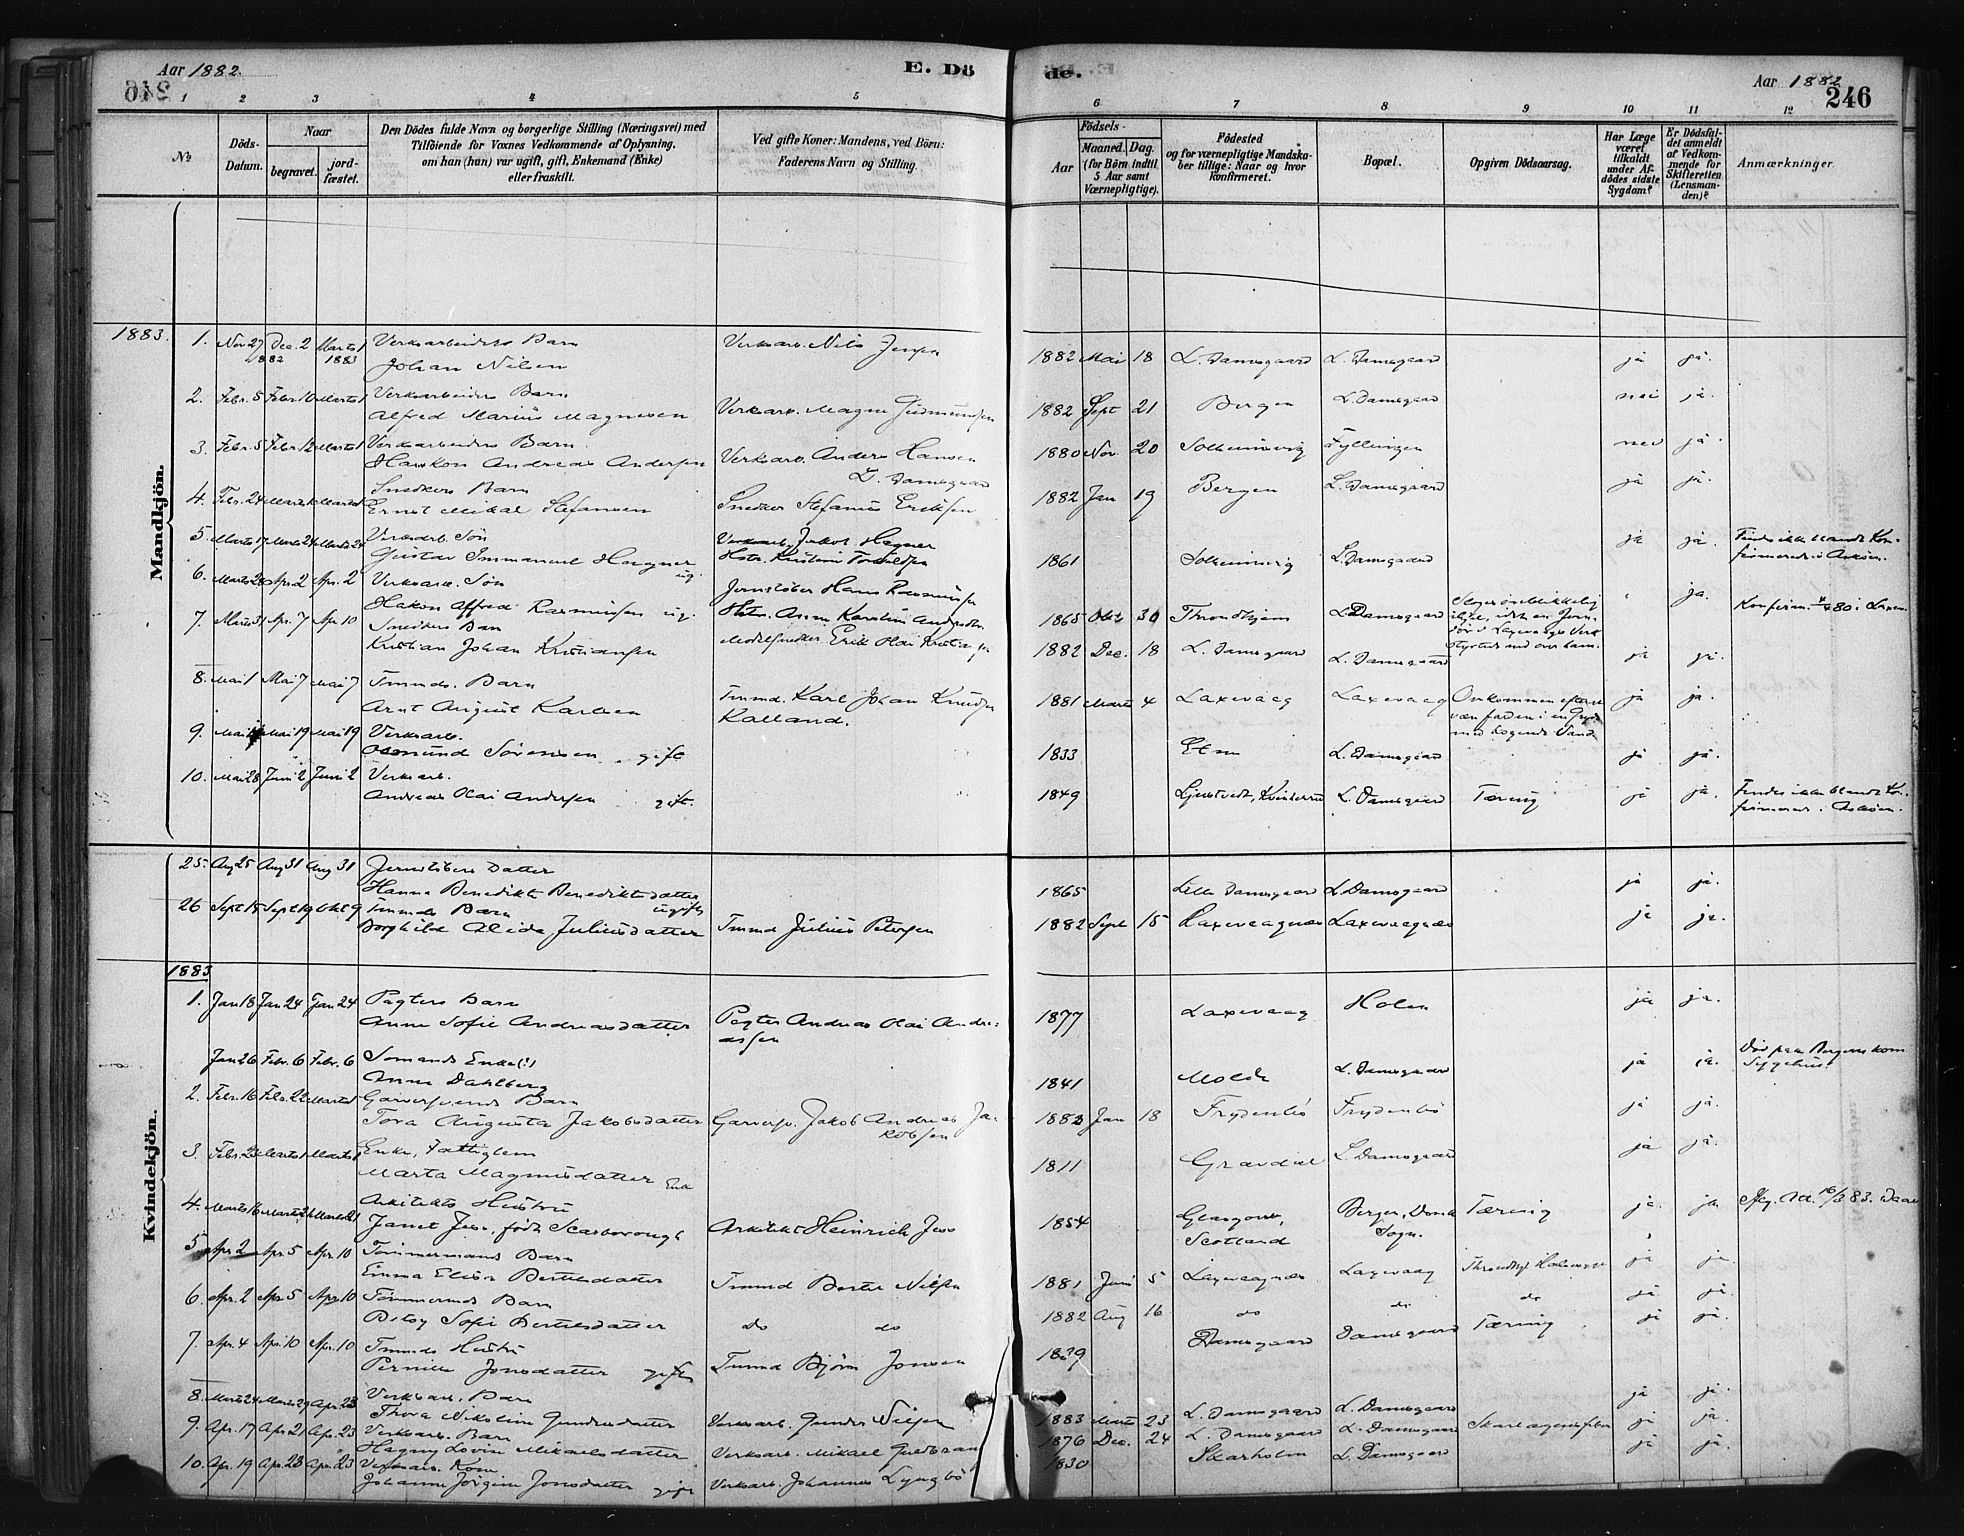 Aar 1882.
E. Dö
de.
Aar 1882
246
1 2 3 4 5 6 7 8 9 10 11 12
№
Döds-Datum.
Naar
begravet.
jord-fæstet.
Den Dödes fulde Navn og borgerlige Stilling (Næringsvei) med
Tilföiende for Voxnes Vedkommende af Oplysning,
om han (hun) var ugift, gift, Enkemand (Enke)
eller fraskilt.
Ved gifte Koner: Mandens, ved Börn:
Faderens Navn og Stilling.
Födsels-
Aar
Maaned. Dag.
(for Börn indtil
5 Aar samt
Værnepligtige).
Födested
og for værnepligtige Mandska-
ber tillige: Naar og hvor
konfirmeret.
Bopæl.
Opgiven Dödsaarsag.
Har Læge
været
tilkaldt
under Af-
dödes sidste
Sygdom?
Er Dödsfal-
det anmeldt
af Vedkom-
mende for
Skifteretten
(Lensman-
den)?
Anmærkninger.
Mandkjön.
1883.
1. Nov 27 Dec. 2 Marts 1 Verksarbeiders Barn Verksarb. Nils
1882 1883 Johan Nilsen 1882 Mai 18 L. Damsgaard L. Damsgaard ja ja.
2. Febr. 5 Febr. 10 Marts 1 Verksarbeiders Barn
Alfred Marius Magnesen Verksarb. Magne Gudmundsen 1882 Sept 21 Bergen L. Damsgaard nei ja.
3. Febr. 5 Febr. 12 Marts 1 Verksarbeiders Barn
Haakon Andreas Andersen Verksarb. Anders Hansen 1880 Nov. 20 Solheimsvig Fyllingen nei ja.
L. Damsgaard
4. Febr. 24 Marts 1 Marts 1 Snedkers Barn
Ernst Mikal Stefansen Snedker Stefanus Eriksen 1882 Jan 19 Bergen L. Damsgaard ja ja.
5. Marts 17 Marts 24 Marts 24 Verksarb. Søn Verksarb. Jakob Hagner
Gustav Immanuel Hagner ug. Hstr. Kristine 1861 Solheimsvig L. Damsgaard ja ja. Findes ikke blandt Kon-
firmerede i Askøen.
6. Marts 28 Apr. 2 Apr. 2 Verksarb. Søn Jernstøber Hans Rasmusen
Hakon Alfred Rasmusen ug. Hstr. Anne Karoline 1865 Okt 30 Throndhjem L. Damsgaard ja. Konfirm. 80 i Laxev.
7. Marts 31 Apr. 7 Apr. 10 Snedkers Barn
Kristian Johan Kristiansen Modelsnedker Erik Olai Kristiansen 1882 Dec. 18 L. Damsgaard L. Damsgaard ja ja.
8. Mai 1 Mai 7 Mai 7 Tmmds. Barn
Arnt August Karlsen Tmmd. Karl Johan Knudsen
Kalland. 1881 Marts 4 Laxevaag Laxevaag Omkommen efter at
være falden i en Gryde
med kogende Vand ja ja.
9. Mai Mai 19 Mai 19 Verksarb.
Osmund Sørensen gift 1833 Etne L. Damsgaard ja ja.
10. Mai 28 Juni 2 Juni 2 Verksarb.
Andreas Olai Andersen gift. 1849 L. Damsgaard Tæring ja ja. Findes ikke blandt Kon-
firmerede i Askøen.
Kvindekjön.
25. Aug 25 Aug 31 Aug 31 Jernstøbers Datter
Hanna Benedikte Benediktsdatter ugift 1865 Lille Damsgaard L. Damsgaard ja ja.
26 Sept 15 Sept 19 Okt 9 Tmmds Barn
Borghild Alida Juliusdatter Tmmd Julius Petersen 1882 Sept 15 Laxevaagnæs Laxevaagnæs ja ja.
1883
1. Jan 18 Jan 24 Jan 24 Pagters Barn
Anne Sofie Andreasdatter Pagter Andreas Olai Andre-
assen 1877 Laxevaag Holen ja ja.
Jan 26 Febr. 6 Febr. 6 Sømands Enke(?)
Anne Dahlberg 1841 Molde L. Damsgaard ja ja. Død paa Bergens kom
Sygehus.
2. Febr. 16 Febr. 22 Marts 1 Garversvends Barn
Tora Augusta Jakobsdatter Garversv. Jakob Andreas Ja-
kobsen 1883 Jan 18 Frydenbö Frydenbö ja ja.
3. Febr. 23 Marts 1 Marts 1 Enke, Fattiglem
Marta Magnusdatter Enk 1811 Gravdal L. Damsgaard ja ja.
4. Marts 16 Marts 21 Marts 21 Arkitekts Hustru
Janet Jess, født Scarborough Arkitekt Heinrich Jess 1854 Glasgow,
Scotland Bergen, Domk.
Sogn. Tæring ja. ja 16/3 83.
5. Apr. 2 Apr. 5 Apr. 10 Tømmermands Barn
Emma Elisa Bertelsdatter Tmmd Bertel Nilsen 1881 Juni 5 Laxevaagnæs Laxevaag ja ja
6. Apr. 2 Apr. 5 Apr. 10 Tømmermds Barn
Betsy Sofie Bertelsdatter do do 1882 Aug 16 do do do ja ja.
7. Apr. 4 Apr. 10 Apr. 10 Tmmds Hustru
Pernille Jonsdatter gift Tmmd Bjørn Jonsen 1839 Damsgaard Damsgaard Tæring ja ja.
8. Marts 24 Marts 29 Apr. 23 Verksarb. Barn
Thora Nikoline Gundersdatter Verksarb. Gunder Nilsen 1883 Marts 23 L. Damsgaard L. Damsgaard ja ja.
9. Apr. 17 Apr. 21 Apr. 23 Verksarb. Barn
Hagny Lovise Mikaelsdatter Verksarb. Mikael Guldbrand 1876 Dec. 24 L. Damsgaard L. Damsgaard Skarlagensfeber ja ja.
10. Apr. 19 Apr. 23 Apr. 23 Verksarb. Kone
Johanne Jørgine Jonsdatter gift Verksarb. Johannes Lyngbö 1830 Skarholm L. Damsgaard ja ja.